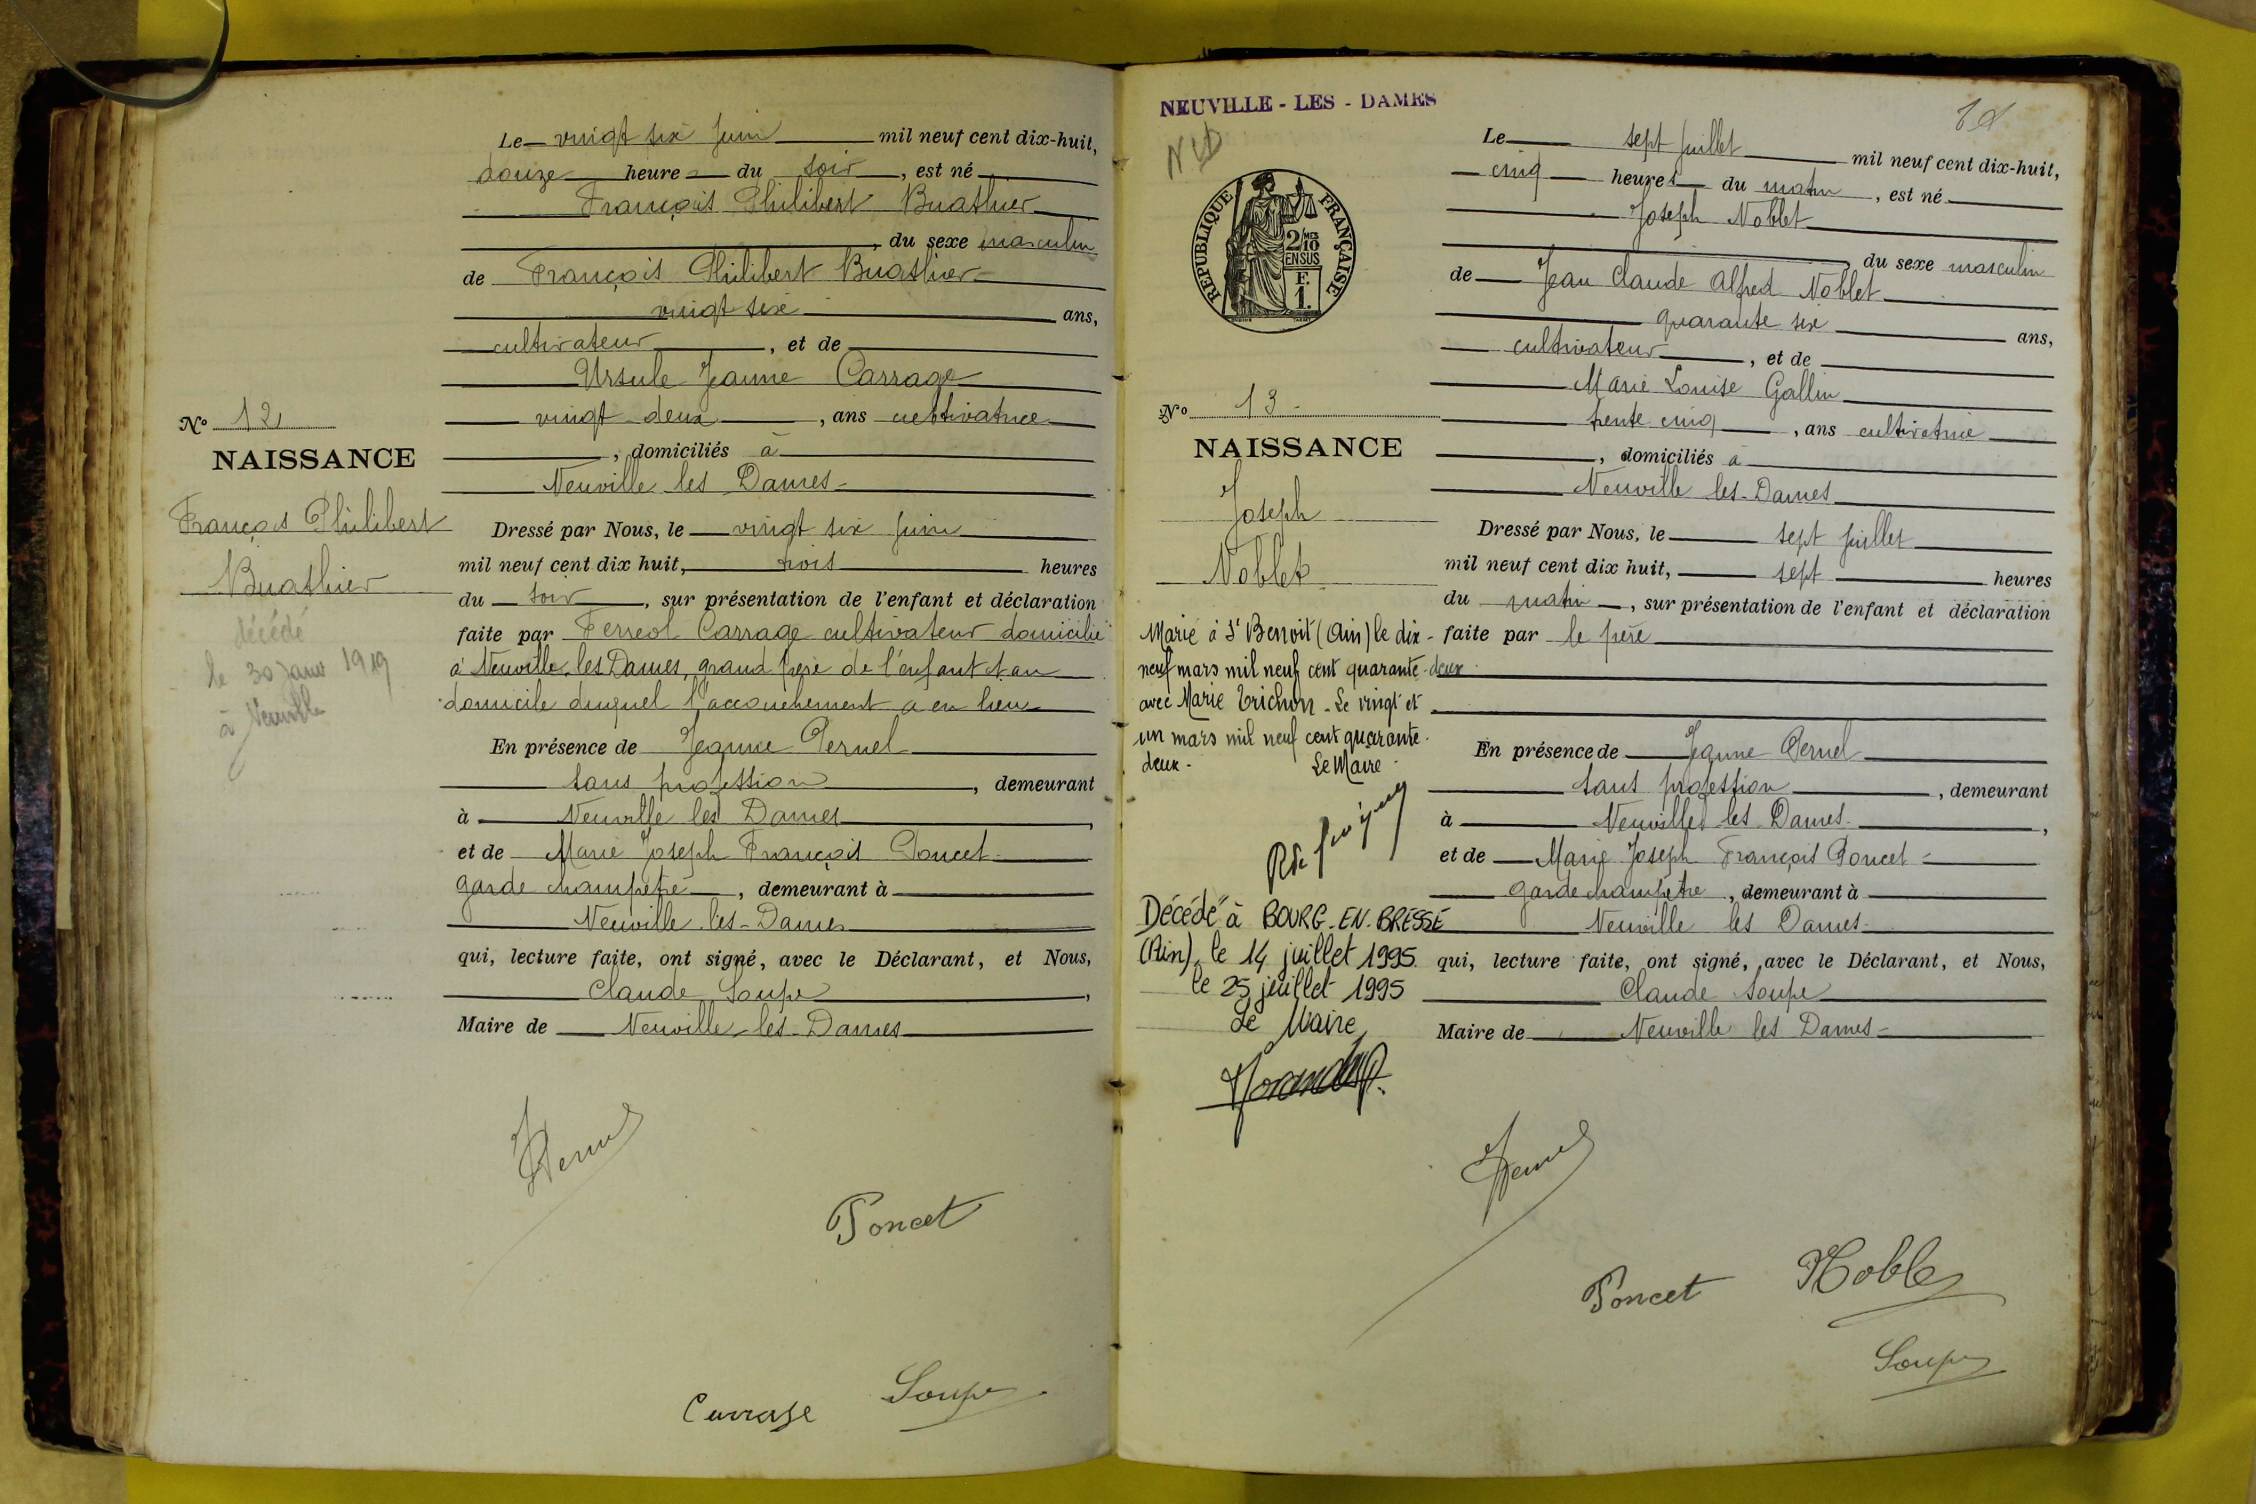 Le vingt six juin mil neuf cent dix-huit,
douze heure du soir, est né
François Philibert Buathier
, du sexe masculin
de François Philibert Buathier
vingt six ans,
cultivateur, et de
Ursule Jeanne Carrage
vingt deux, ans cultivatrice
, domiciliés à
Neuville les Dames
Nº 12
NAISSANCE
François Philibert
Buathier
décédé
le 30 janv 1919
à Neuville
Dressé par Nous, le vingt six juin
mil neuf cent dix huit, trois heures
du soir, sur présentation de l'enfant et déclaration
faite par Ferreol Carrage cultivateur domicilié
à Neuville les Dames, grand père de l'enfant et au
domicile duquel l'accouchement a eu lieu
En présence de Jeanne Pernel
sans profession, demeurant
à Neuville les Dames,
et de Marie Joseph François Poncet
garde champêtre, demeurant à
Neuville les-Dames
qui, lecture faite, ont signé, avec le Déclarant, et Nous,
Claude Soupe,
Maire de Neuville les Dames
Poncet
Carrage
Soupe
NEUVILLE - LES - DAMES
NLD
REPUBLIQUE FRANÇAISE
2/MES
10
EN SUS
F.
1.
Le sept juillet mil neuf cent dix-huit,
cinq heures du matin, est né
Joseph Noblet
, du sexe masculin
de Jean Claude Alfred Noblet
quarante six ans,
cultivateur, et de
Marie Louise Gallin
trente cinq, ans cultivatrice
, domiciliés à
Neuville les-Dames
Nº 13
NAISSANCE
Joseph
Noblet
Marié à St Benoit (Ain) le dix-
neuf mars mil neuf cent quarante-deux
avec Marie Trichon. Le vingt et
un mars mil neuf cent quarante-
deux.
Le Maire
Décédé à BOURG-EN-BRESSE
(Ain), le 14 juillet 1995
le 25 juillet 1995
Le Maire
Dressé par Nous, le sept juillet
mil neuf cent dix huit, sept heures
du matin, sur présentation de l'enfant et déclaration
faite par le père
En présence de Jeanne Pernel
sans profession, demeurant
à Neuville les Dames,
et de Marie Joseph François Poncet
garde champetre, demeurant à
Neuville les Dames
qui, lecture faite, ont signé, avec le Déclarant, et Nous,
Claude Soupe
Maire de Neuville les Dames
Poncet
Noblet
Soupe